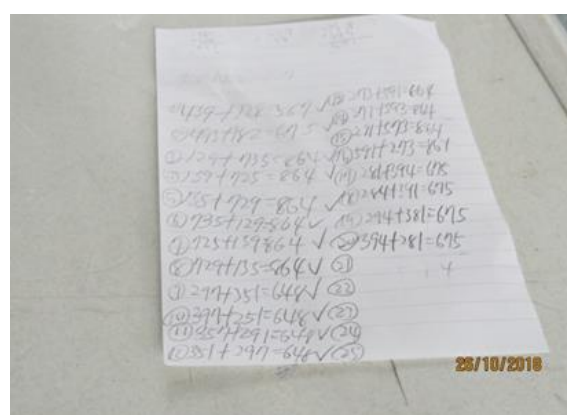 ①439+128=567 ✓
②493+182=675 ✓
③129+735=864 ✓
④139+725=864 ✓
⑤135+729=864 ✓
⑥735+129=864 ✓
⑦725+139864 ✓
⑧729+135=864 ✓
⑨297+351=648 ✓
⑩397+251=648 ✓
⑪357+291=648 ✓
⑫351+297=648 ✓
⑬273+591=864
⑭271+593=864
⑮291+573=864
⑯591+273=864
⑰281+394=675
⑱284+391=675
⑲294+381=675
⑳394+281=675
㉑
㉒
㉓
㉔
㉕
26/10/2018